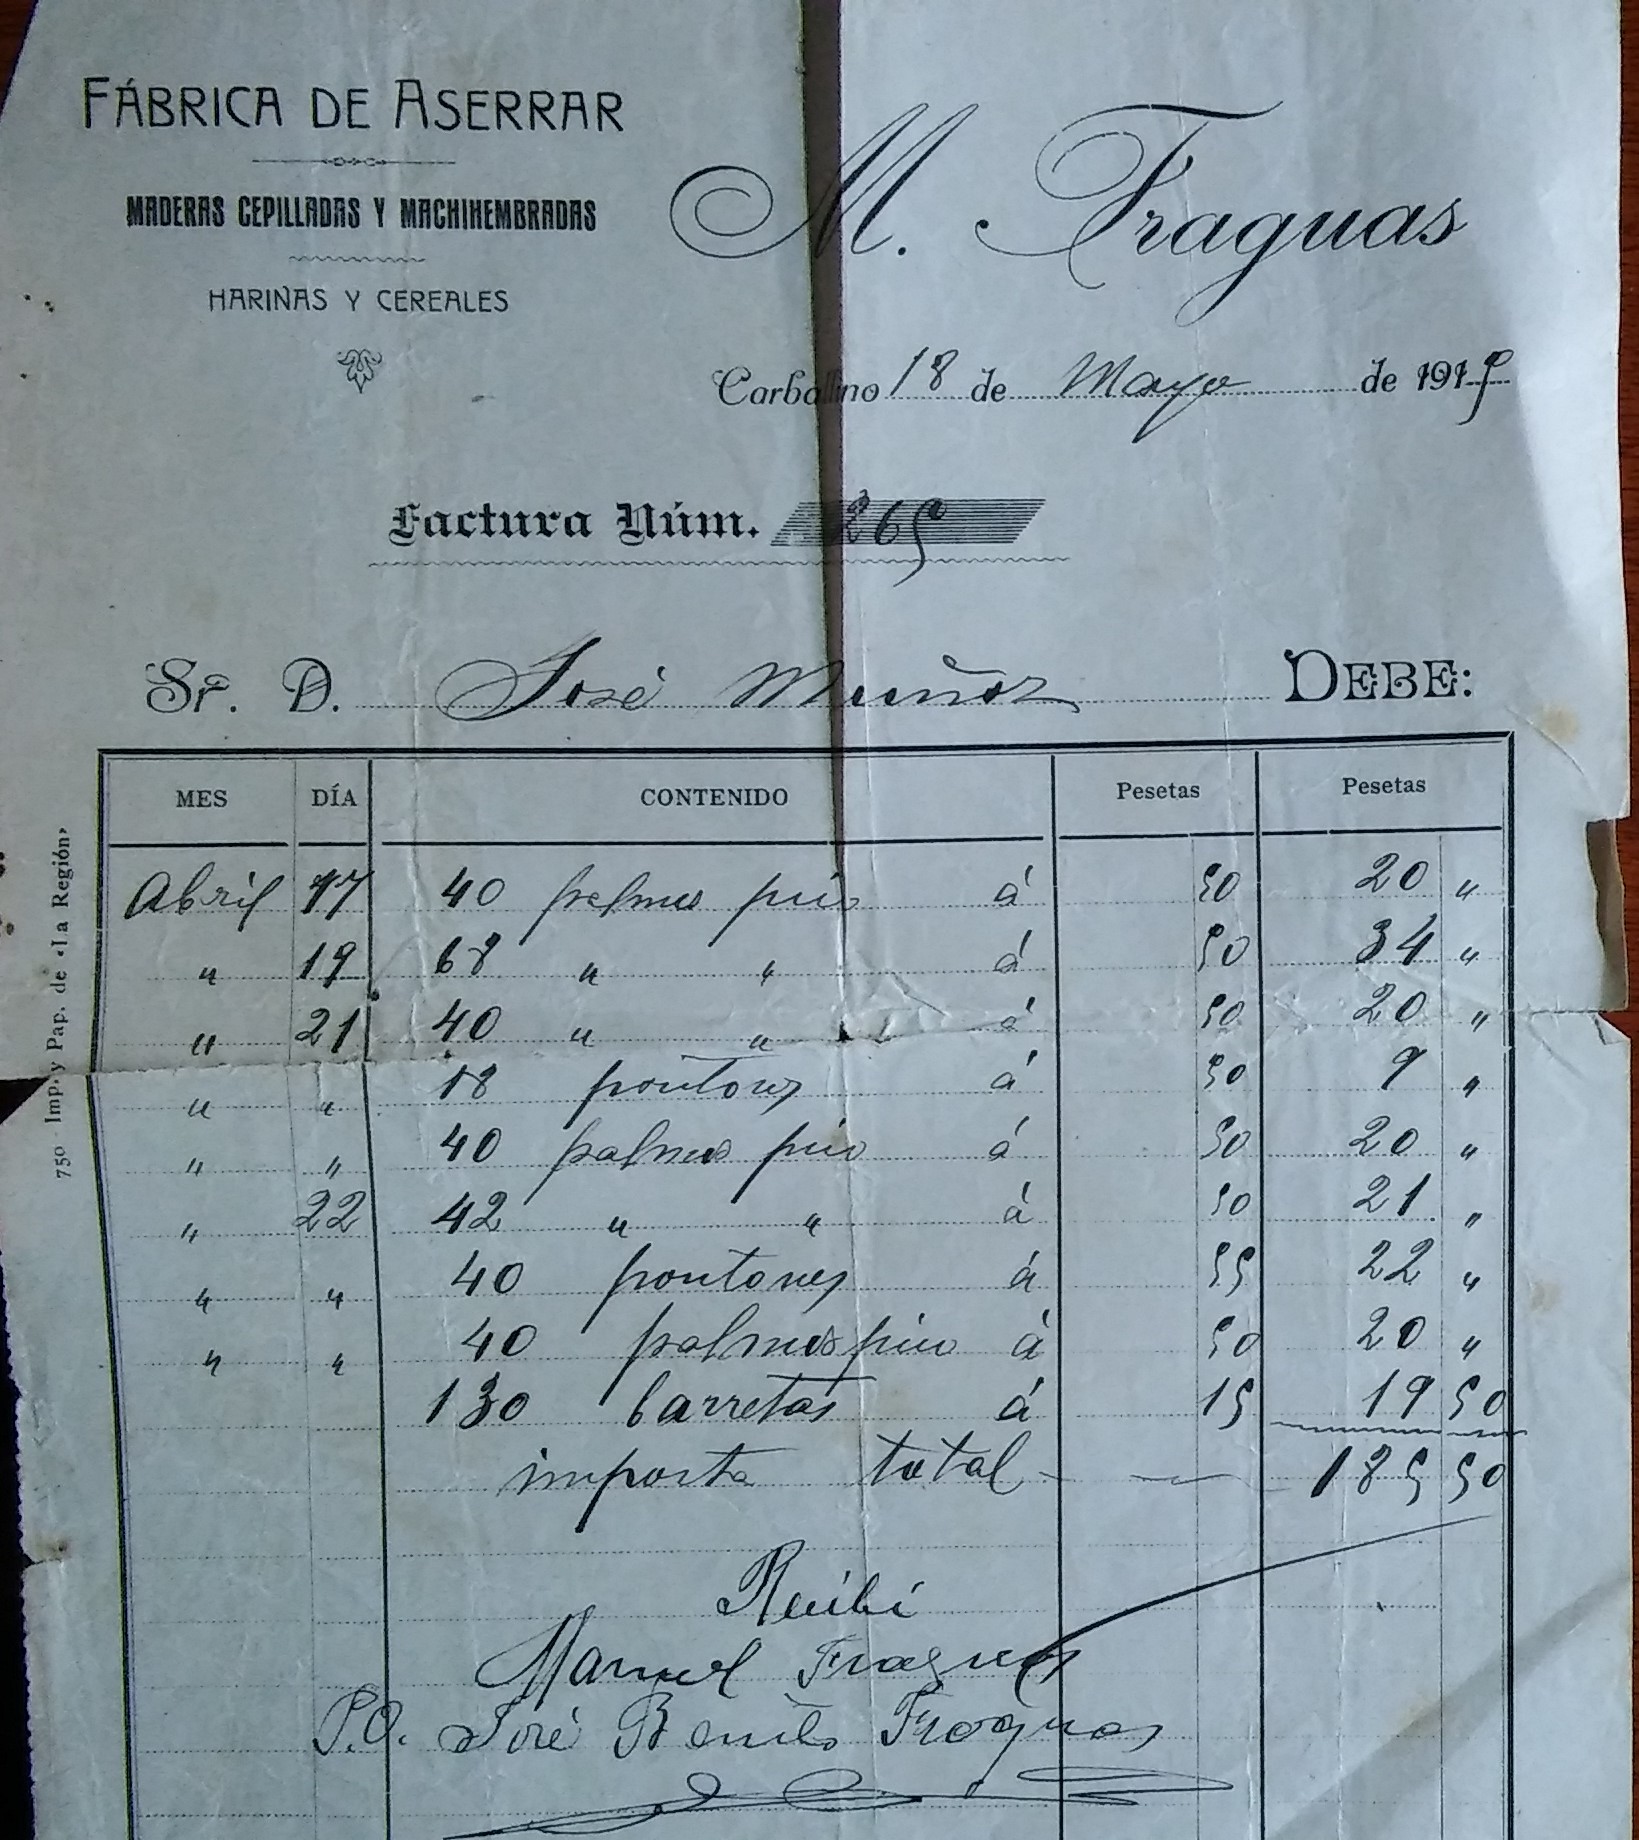 FÁBRICA DE ASERRAR
MADERAS CEPILLADAS Y MACHIHEMBRADAS
HARINAS Y CEREALES
M. Fraguas
Carballino 18 de Mayo de 1915
Factura Núm. 265
Sr. D. José Muñoz DEBE:
MES DÍA CONTENIDO Pesetas Pesetas
Abril 17 40 palmos pino á 50 20 "
" 19 68 " " á 50 34 "
" 21 40 " " á 50 20 "
" " 18 pontones á 50 9 "
" " 40 palmos pino á 50 20 "
" 22 42 " " á 50 21 "
" " 40 pontones á 55 22 "
" " 40 palmos pino á 50 20 "
130 barretas á 15 19 50
importa total 185 50
Recibí
Manuel Fraguas
P.O. José Benito Fraguas
750 Imp. y Pap. de «La Región»